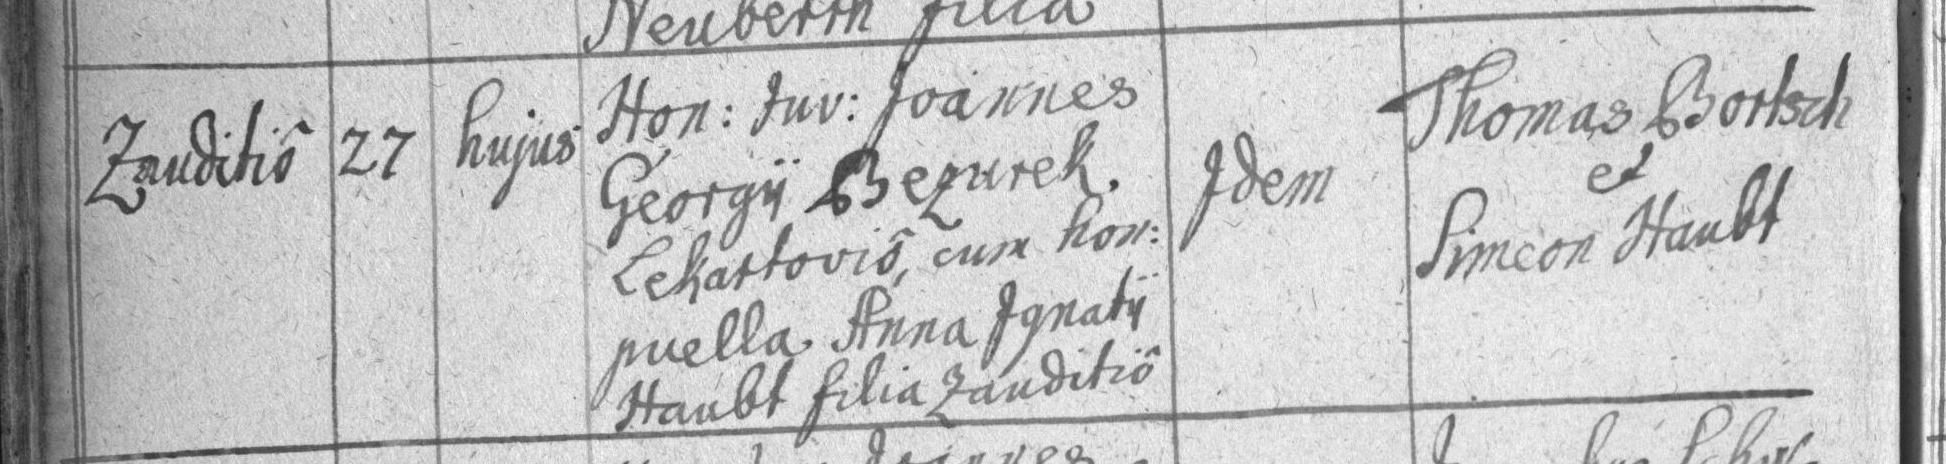 Neuberth filia
Zauditiô 27 hujus Hon: Juv: Joannes
Georgÿ Bezurek
Lekartoviô, cum hon:
puella Anna Ignatÿ
Haubt filia Zauditiô
Idem
Thomas Bortsch
et
Simeon Haubt
Joannes